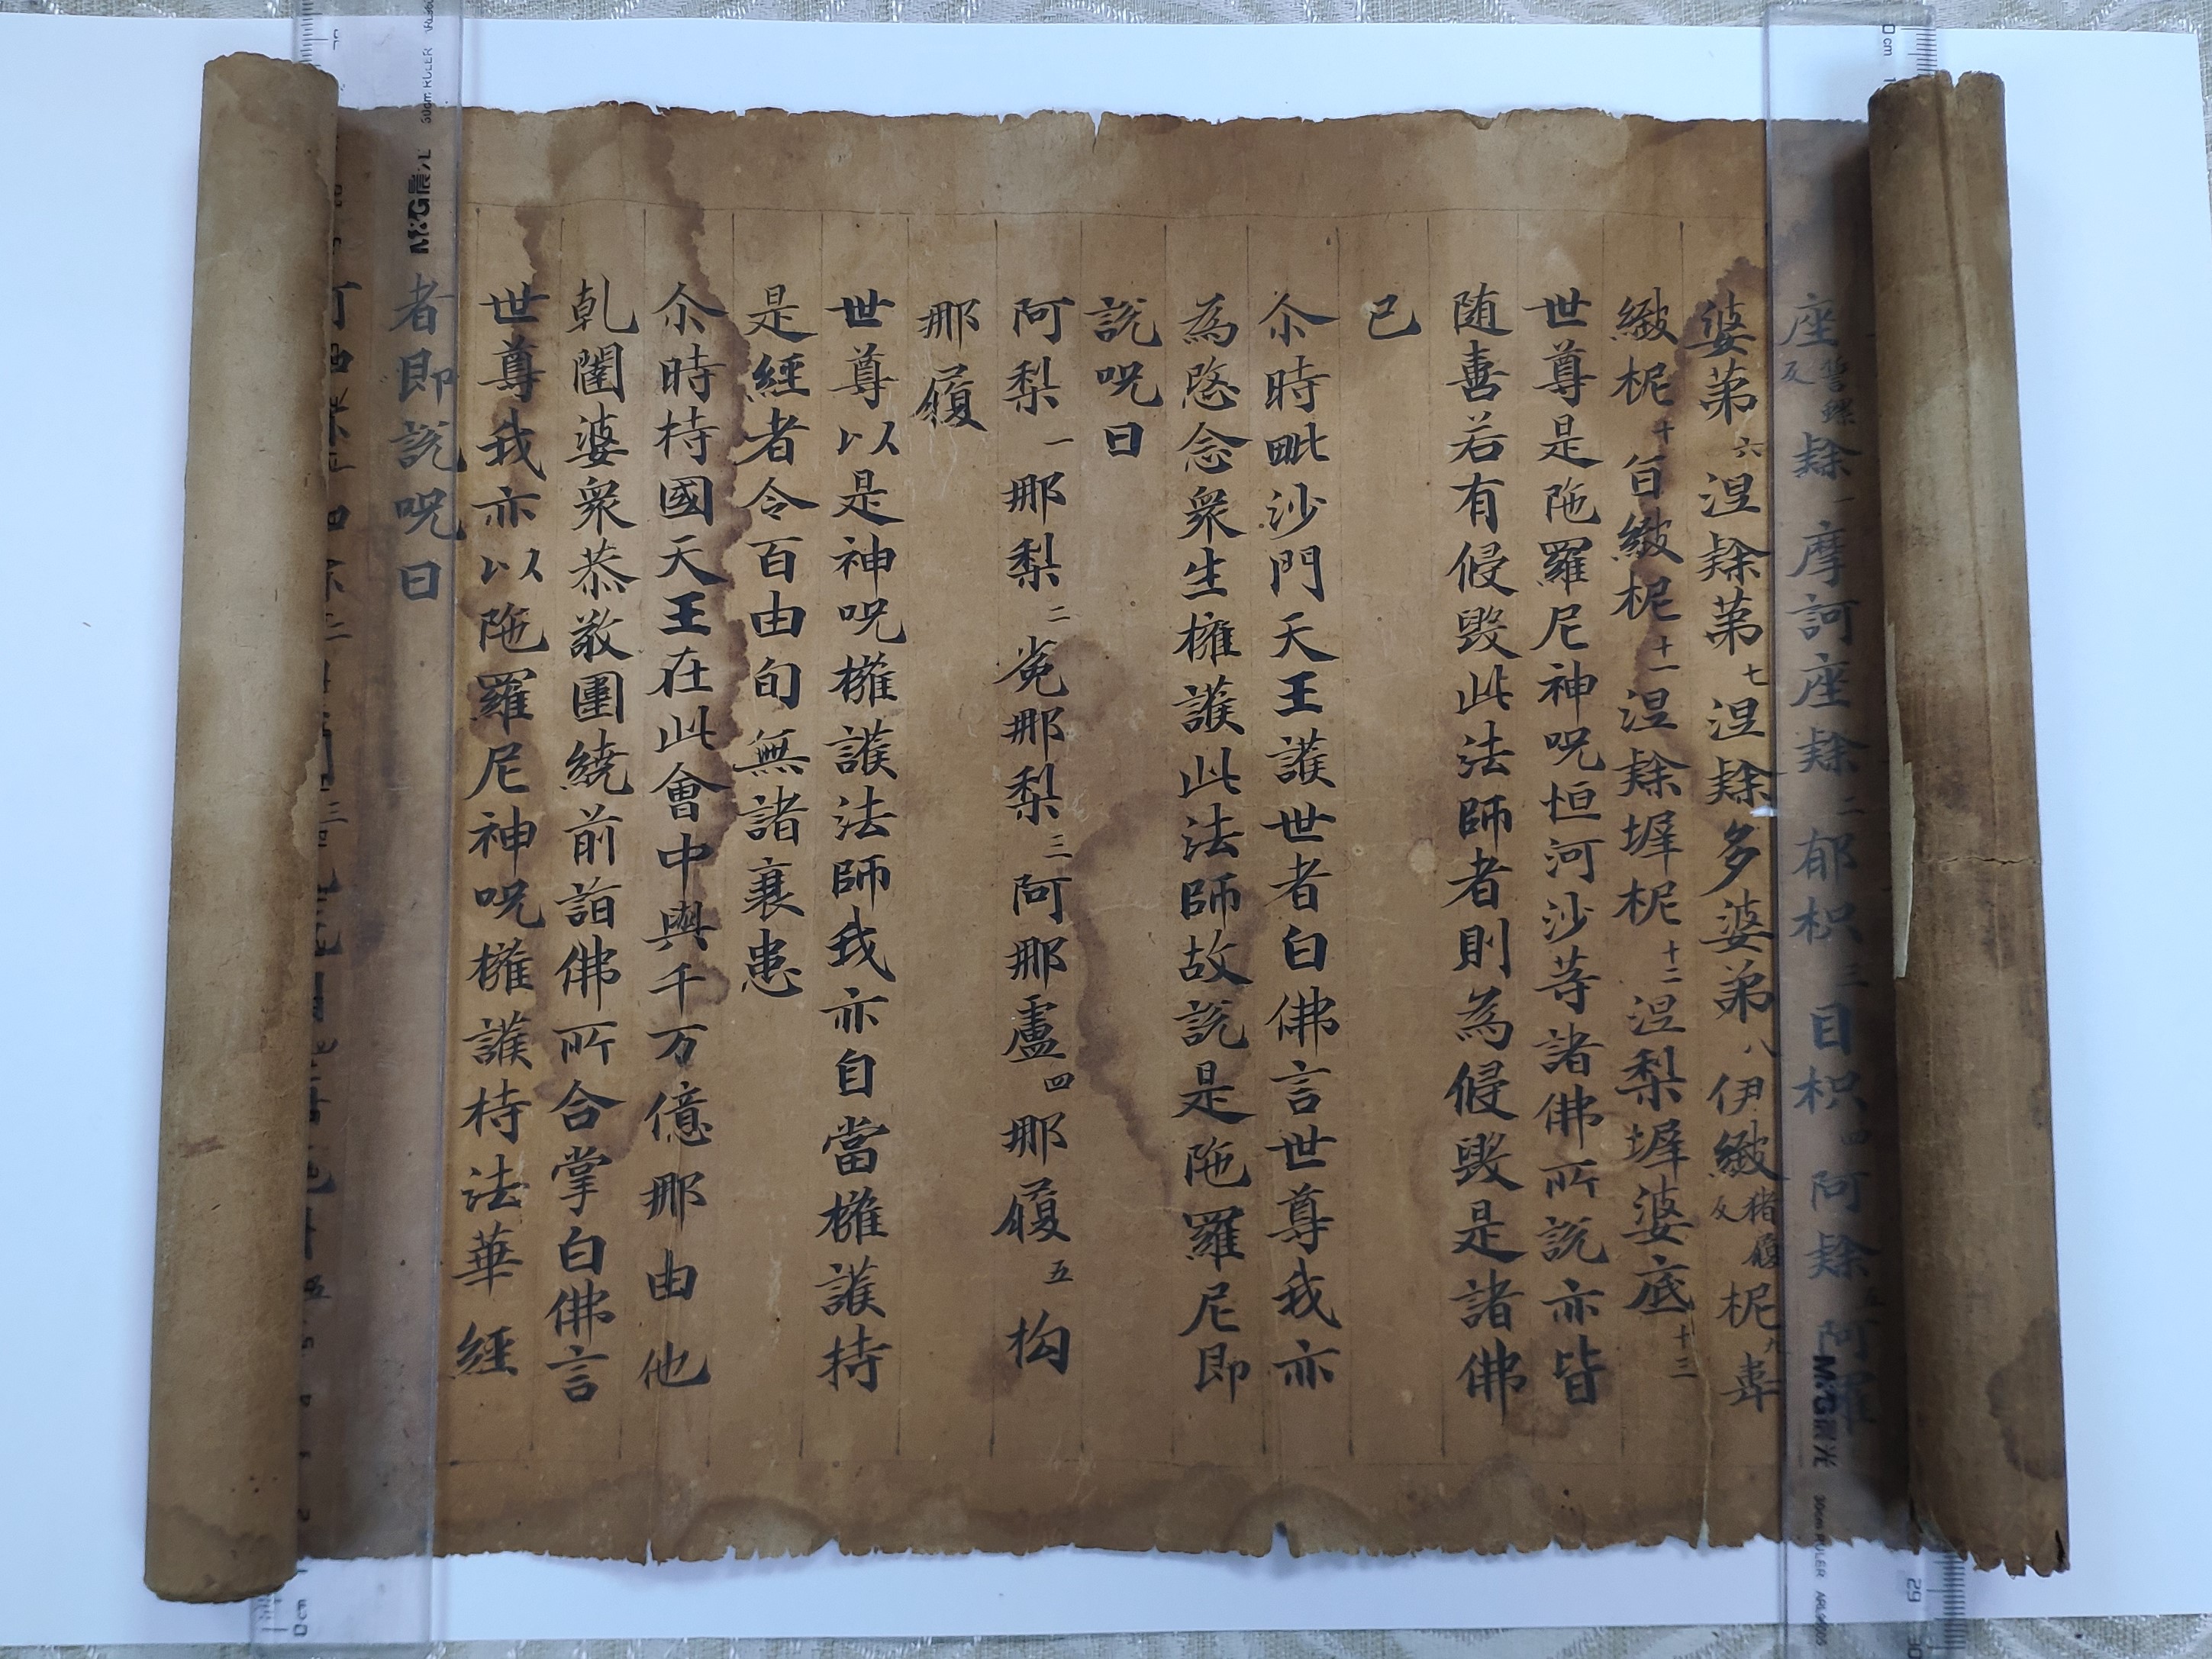 座誓螺反隸一摩訶座隸二郁枳三目枳四阿隸五阿羅
婆第六涅隸第七涅隸多婆第八伊緻猪履反柅九韋
緻柅十旨緻柅十一涅隸墀柅十二涅梨墀婆底十三
世尊是陁羅尼神呪恒河沙等諸佛所說亦皆
随喜若有侵毀此法師者則為侵毀是諸佛
已
尒時毗沙門天王護世者白佛言世尊我亦
為愍念衆生擁護此法師故說是陁羅尼即
說呪曰
阿梨一那梨二㝹那梨三阿那盧四那履五拘
那履
世尊以是神呪擁護法師我亦自當擁護持
是經者令百由旬無諸衰患
尒時持國天王在此會中與千万億那由他
乹闥婆衆恭敬圍繞前詣佛所合掌白佛言
世尊我亦以陁羅尼神呪擁護持法華經
者即說呪曰
M&G晨光 30cm RULER
M&G晨光 30cm RULER